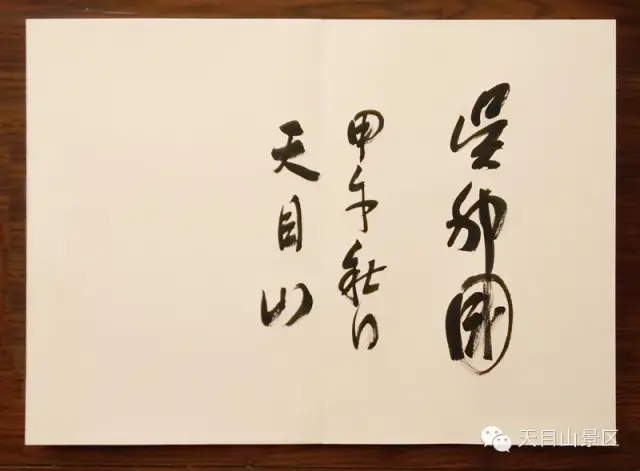 吴邦国
甲午秋日
天目山
天目山景区